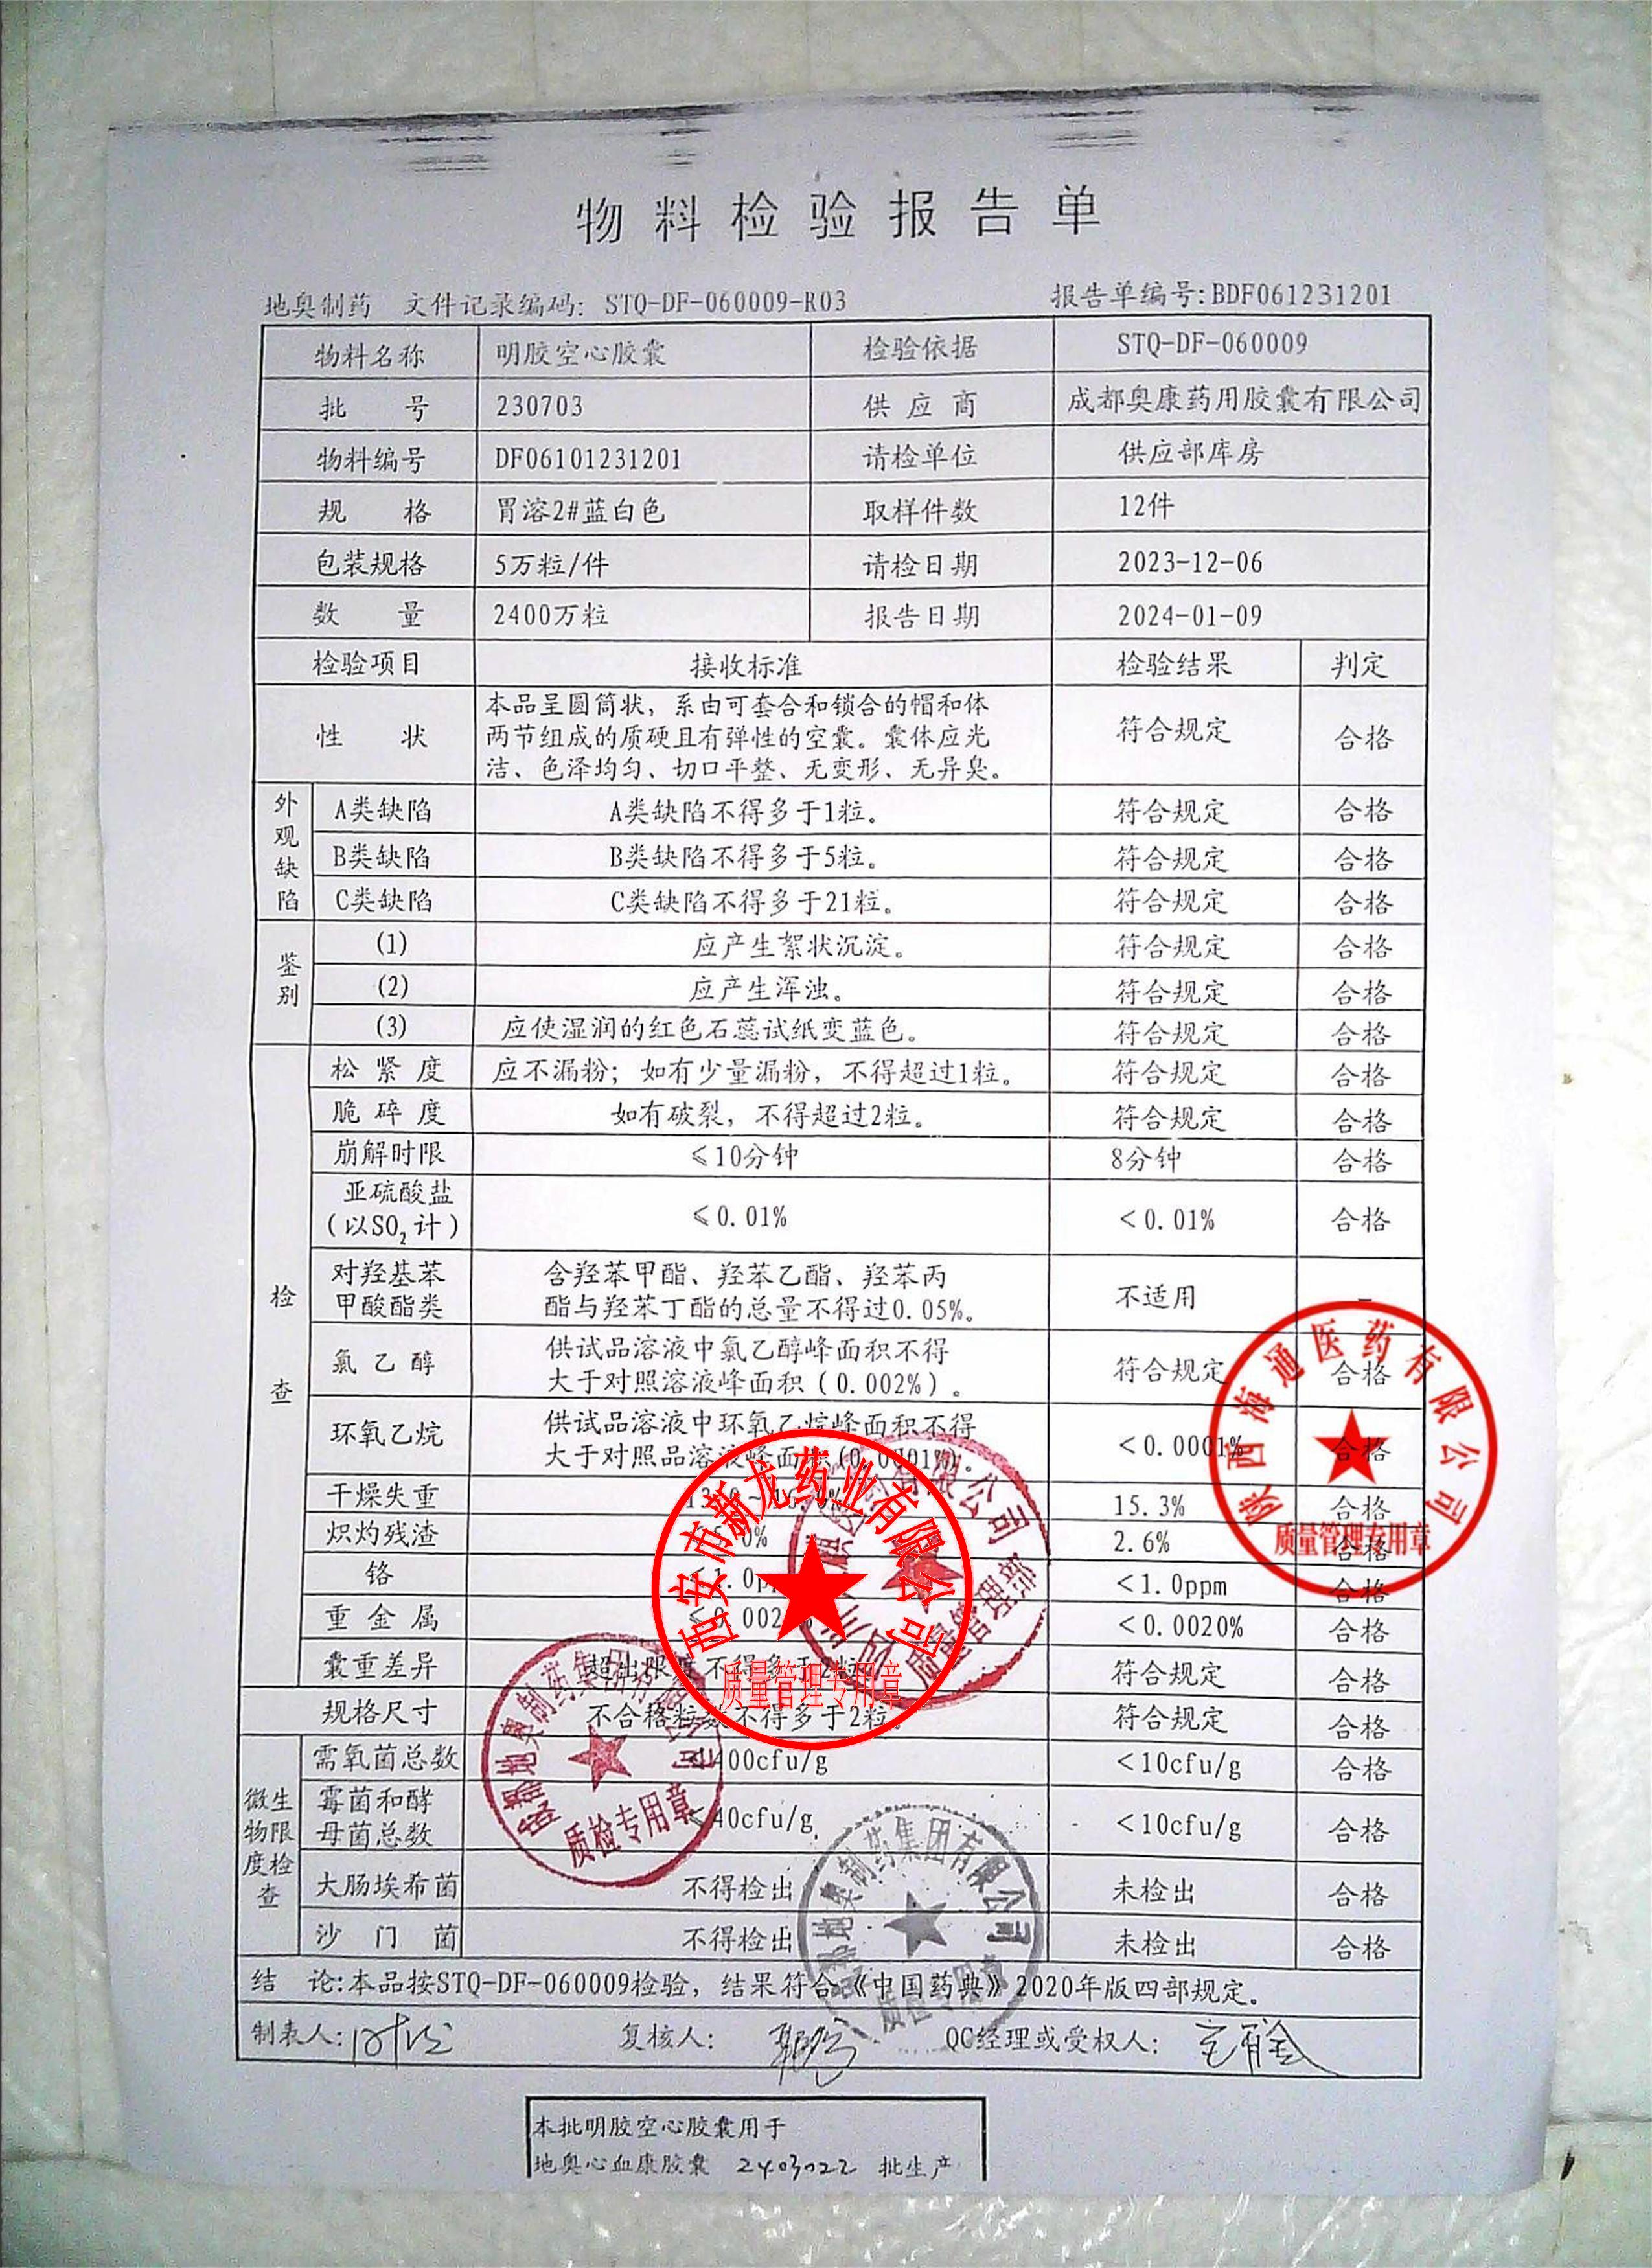 物料检验报告单
地奥制药 文件记录编码: STQ-DF-060009-R03 报告单编号:BDF061231201
物料名称 明胶空心胶囊 检验依据 STQ-DF-060009
批 号 230703 供应商 成都奥康药用胶囊有限公司
物料编号 DF06101231201 请检单位 供应部库房
规 格 胃溶2#蓝白色 取样件数 12件
包装规格 5万粒/件 请检日期 2023-12-06
数 量 2400万粒 报告日期 2024-01-09
检验项目 接收标准 检验结果 判定
性 状 本品呈圆筒状，系由可套合和锁合的帽和体
两节组成的质硬且有弹性的空囊。囊体应光
洁、色泽均匀、切口平整、无变形、无异臭。
符合规定 合格
外观缺陷
A类缺陷 A类缺陷不得多于1粒。 符合规定 合格
B类缺陷 B类缺陷不得多于5粒。 符合规定 合格
C类缺陷 C类缺陷不得多于21粒。 符合规定 合格
鉴别
(1) 应产生絮状沉淀。 符合规定 合格
(2) 应产生浑浊。 符合规定 合格
(3) 应使湿润的红色石蕊试纸变蓝色。 符合规定 合格
检查
松紧度 应不漏粉；如有少量漏粉，不得超过1粒。 符合规定 合格
脆碎度 如有破裂，不得超过2粒。 符合规定 合格
崩解时限 ≤10分钟 8分钟 合格
亚硫酸盐
(以SO₂计) ≤0.01% <0.01% 合格
对羟基苯
甲酸酯类
含羟苯甲酯、羟苯乙酯、羟苯丙
酯与羟苯丁酯的总量不得过0.05%。
不适用 -
氯乙醇 供试品溶液中氯乙醇峰面积不得
大于对照溶液峰面积(0.002%)。
符合规定 合格
环氧乙烷 供试品溶液中环氧乙烷峰面积不得
大于对照品溶液峰面积(0.0001%)。
<0.0001% 合格
干燥失重 15.3% 合格
炽灼残渣 2.6% 合格
铬 <1.0ppm 合格
重金属 <0.0020% 合格
囊重差异 超出限度不得多于2粒 符合规定 合格
规格尺寸 不合格粒数不得多于2粒。 符合规定 合格
微生物限度检查
需氧菌总数 400cfu/g <10cfu/g 合格
霉菌和酵
母菌总数 40cfu/g <10cfu/g 合格
大肠埃希菌 不得检出 未检出 合格
沙门菌 不得检出 未检出 合格
结 论:本品按STQ-DF-060009检验，结果符合《中国药典》2020年版四部规定。
制表人: 复核人: QC经理或受权人:
本批明胶空心胶囊用于
地奥心血康胶囊 2403022 批生产
陕西海通医药有限公司
质量管理专用章
西安市新龙药业有限公司
质量管理专用章
成都地奥制药集团有限公司
质检专用章
成都地奥制药集团有限公司
质检专用章